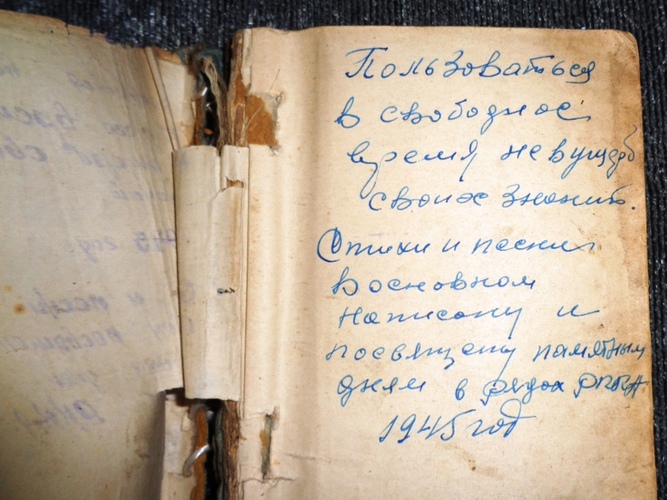 Пользоваться
в свободное
время не в ущерб
своих знаний.
Стихи и песни
в основном
написаны и
посвящены памятным
дням в рядах РККА
1945 год